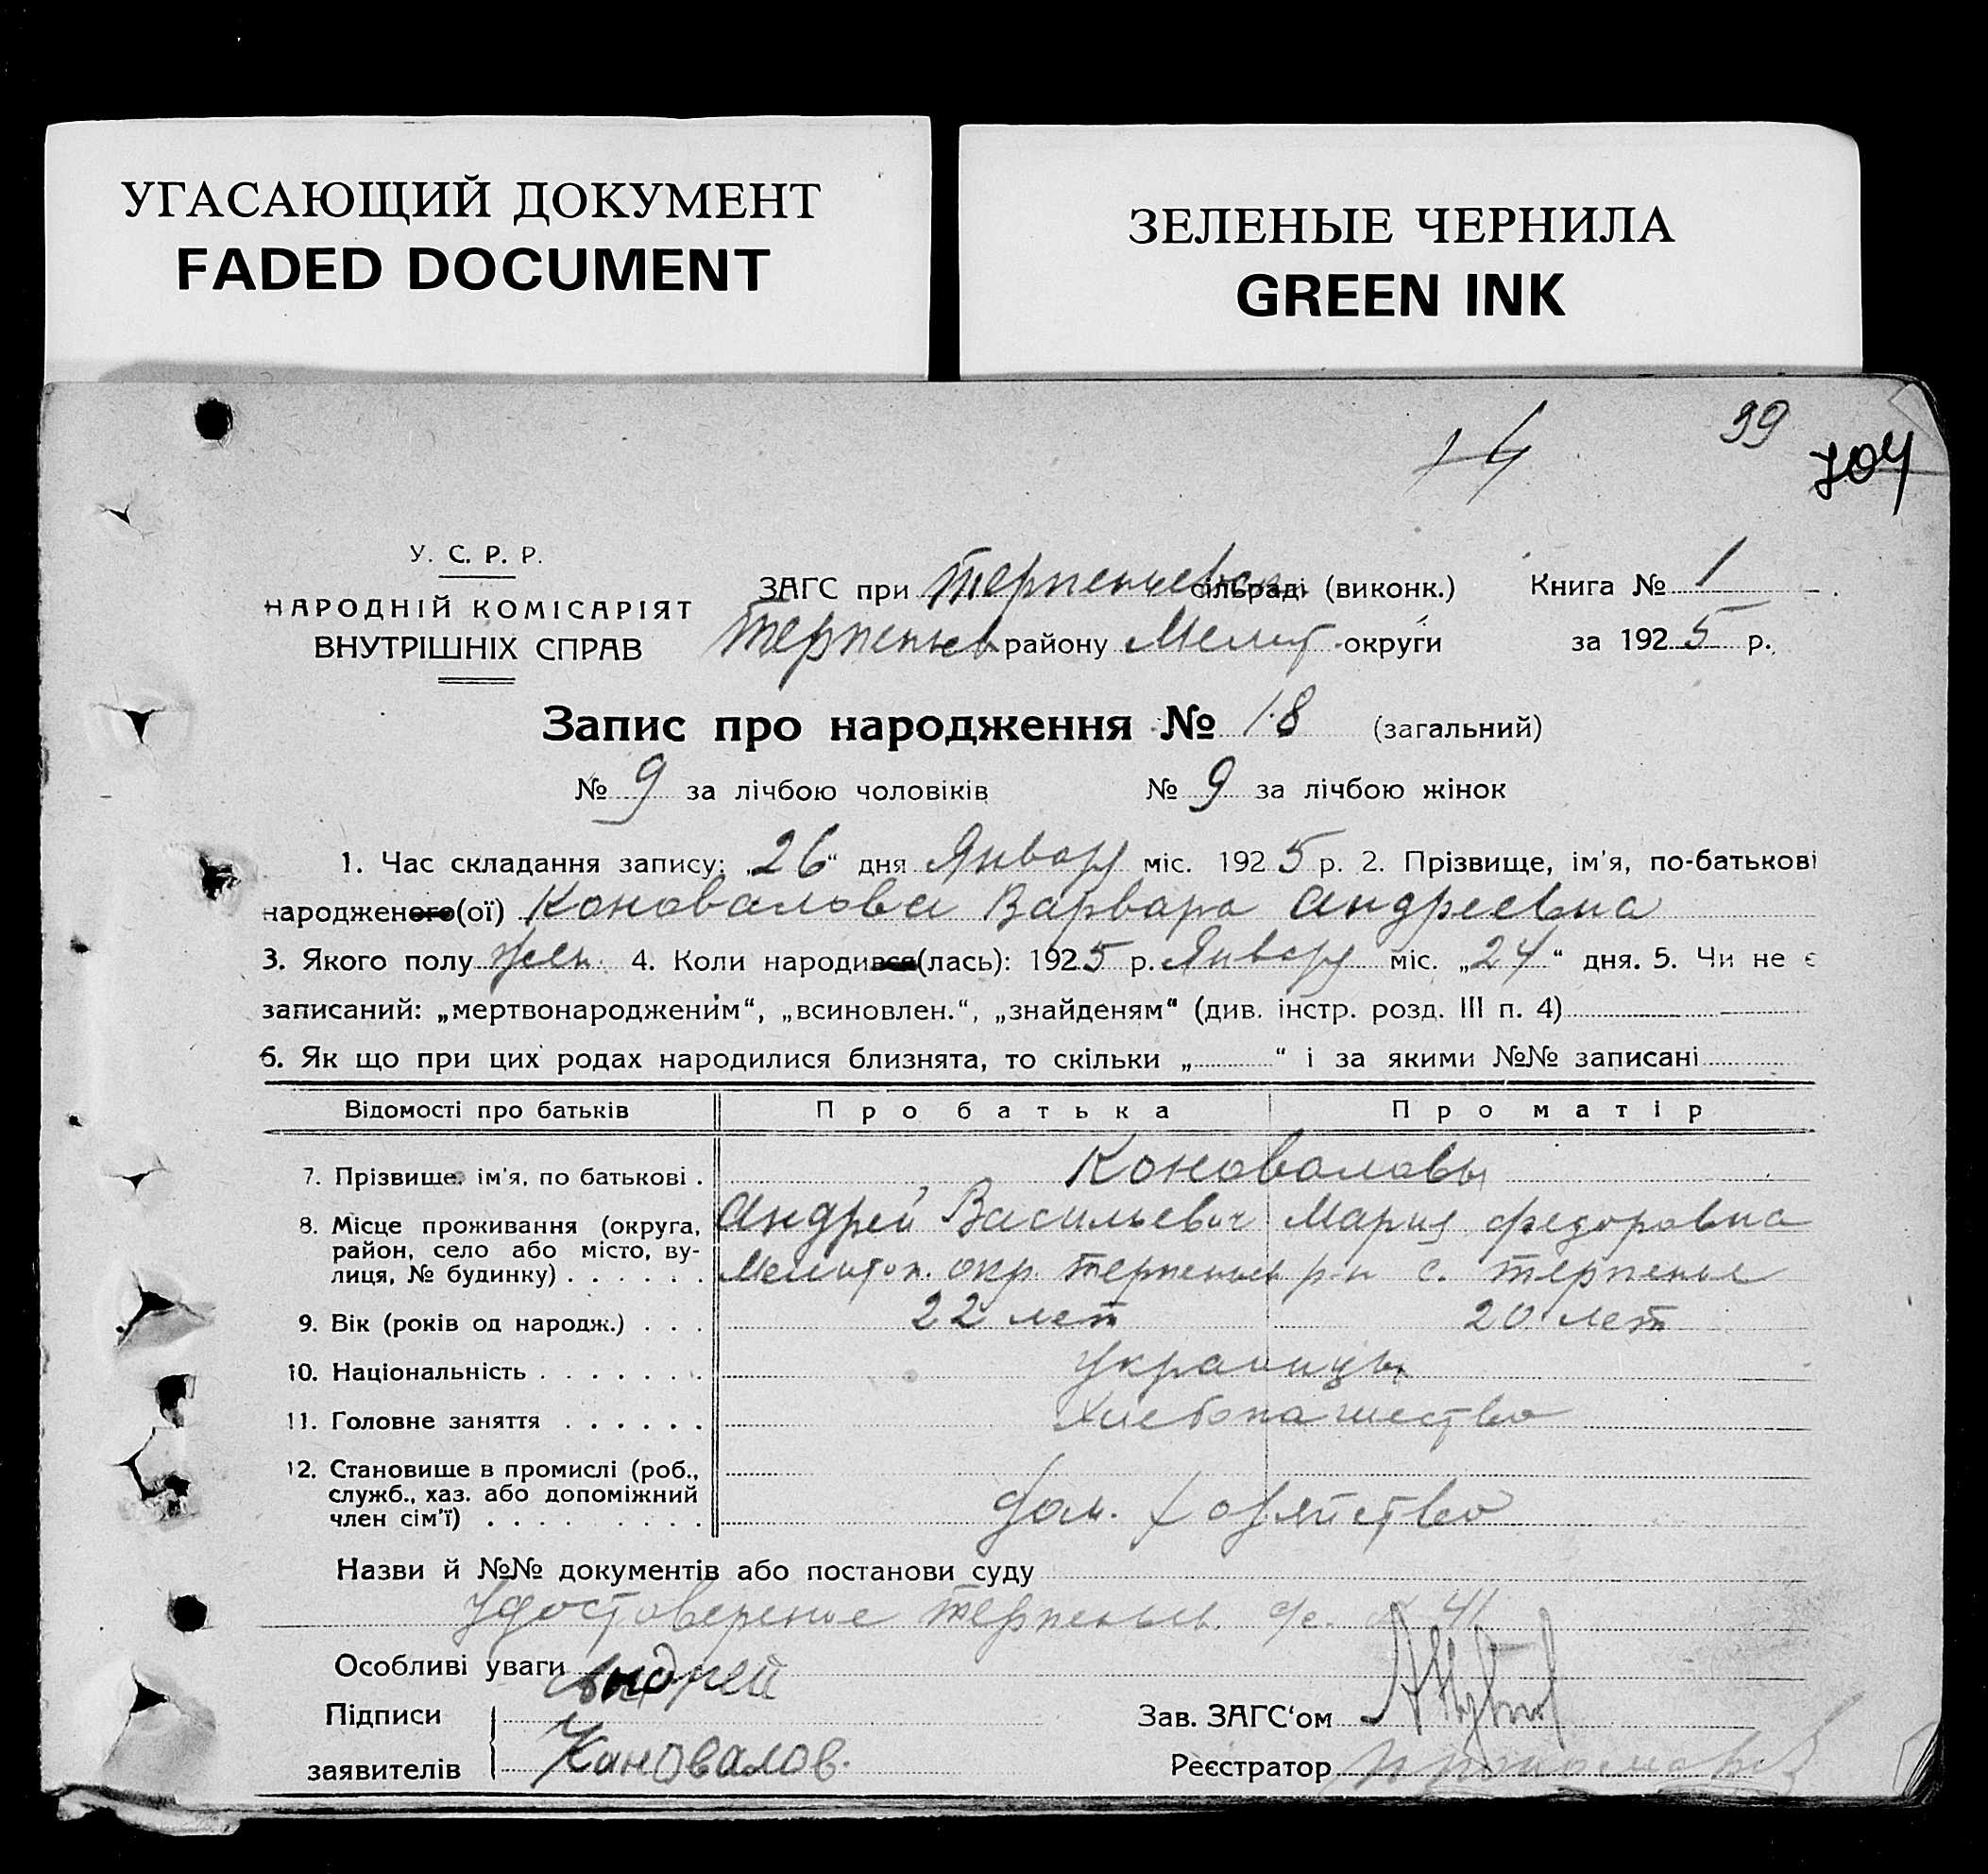 УГАСАЮЩИЙ ДОКУМЕНТ
FADED DOCUMENT
ЗЕЛЕНЫЕ ЧЕРНИЛА
GREEN INK
14
99
704
У. С. Р. Р.
НАРОДНІЙ КОМІСАРІЯТ
ВНУТРІШНІХ СПРАВ
ЗАГС при Терпеньевск сільраді (виконк.) Книга № 1
Терпеньев району Мелит округи за 1925 р.
Запис про народження № 18 (загальний)
№ 9 за лічбою чоловіків № 9 за лічбою жінок
1. Час складання запису: „26“ дня Январу міс. 1925 р. 2. Прізвище, ім'я, по-батькові
народженого(ої) Коновалова Варвара Андреевна
3. Якого полу жен. 4. Коли народився(лась): 1925 р. Январу міс. „24“ дня. 5. Чи не є
записаний: „мертвонародженим“, „всиновлен.“, „знайденям“ (див. інстр. розд. III п. 4)
6. Як що при цих родах народилися близнята, то скільки „ “ і за якими №№ записані
Відомості про батьків Про батька Про матір
7. Прізвище, ім'я, по батькові . Коноваловы
8. Місце проживання (округа, Андрей Васильевич Мария Федоровна
район, село або місто, ву-
лиця, № будинку) . . . . . . Мелитоп. окр. Терпеньев р-н с. Терпенье
9. Вік (років од народж.) . . . 22 лет 20 лет
10. Національність . . . . . . . украинцы
11. Головне заняття . . . . . . Хлебопашество
12. Становище в промислі (роб.,
служб., хаз. або допоміжний
член сім'ї) . . . . . . . . . дом. хозяйство
Назви й №№ документів або постанови суду
Удостоверение Терпеньев. с/с. № 41
Особливі уваги
Андрей
Підписи
Зав. ЗАГС‘ом
заявителів Кановалов.
Реєстратор